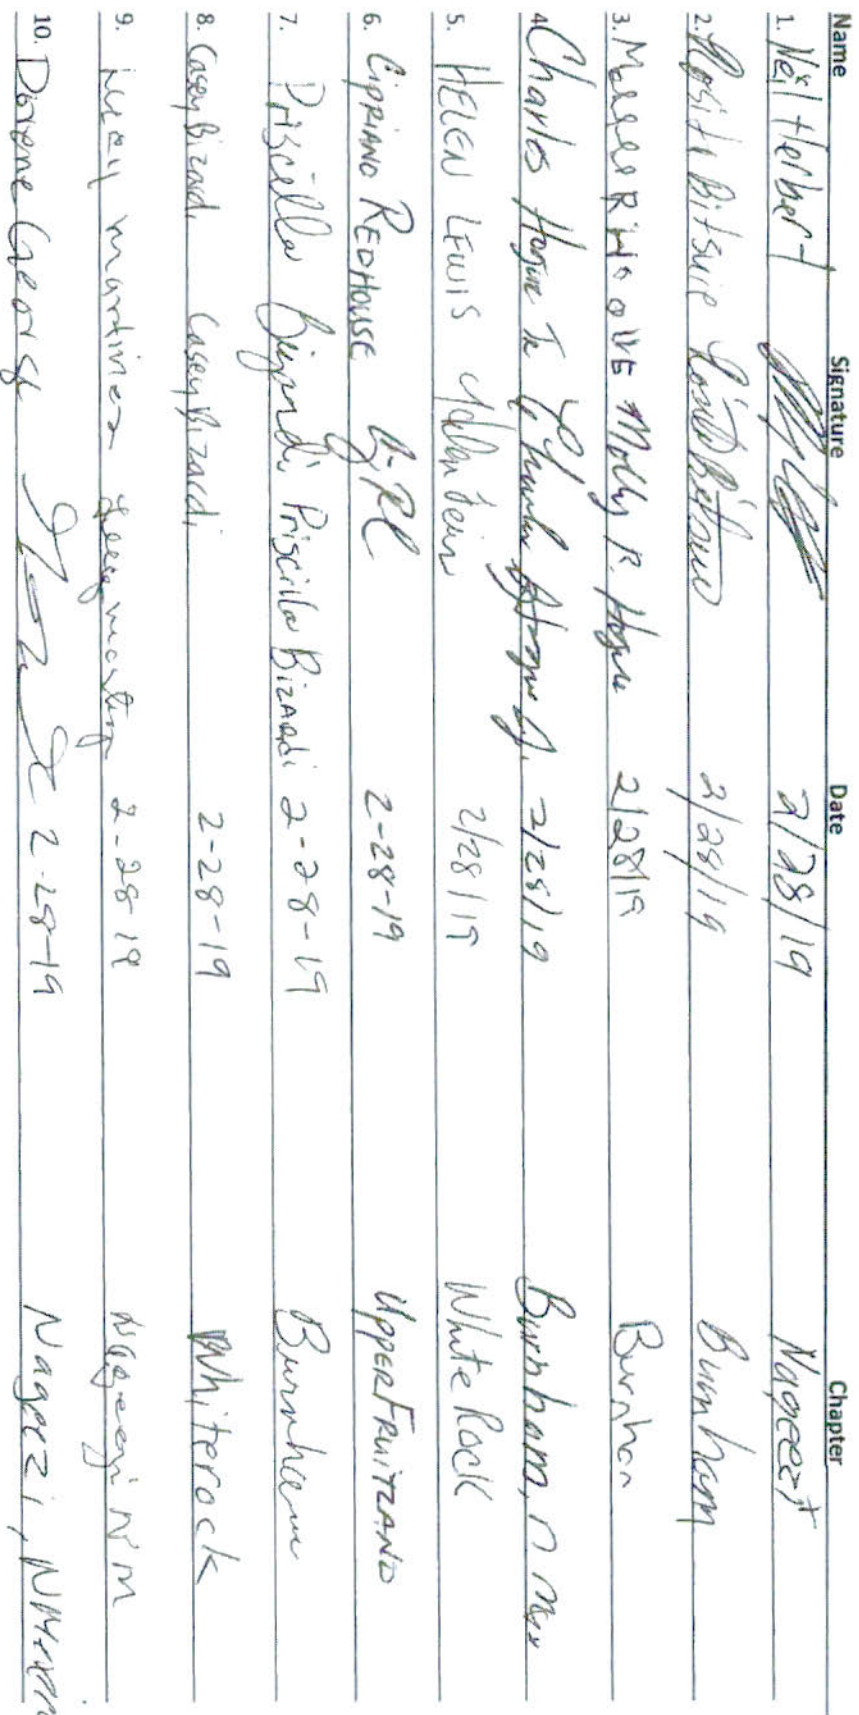 Name Signature Date Chapter
1. Neil Herbert 2/28/19 Nageezi
2. Rosita Bitsuie Rosita Bitsuie 2/28/19 Burnham
3. Molly R. Hogue 2/28/19 Burnham
4 Charles Hogue Jr 2/28/19 Burnham, n mex
5. HELEN LEWIS Helen Lewis 2/28/19 White Rock
6. CIPRIANO REDHOUSE 2-28-19 UPPER FRUITLAND
7. Priscilla Bizardi Priscilla Bizardi 2-28-19 Burnham
8. Casey Bizardi Casey Bizardi 2-28-19 Whiterock
9. martinez 2-28-19 Nageezi NM
10. Dorene George 2-28-19 Nageezi, NM